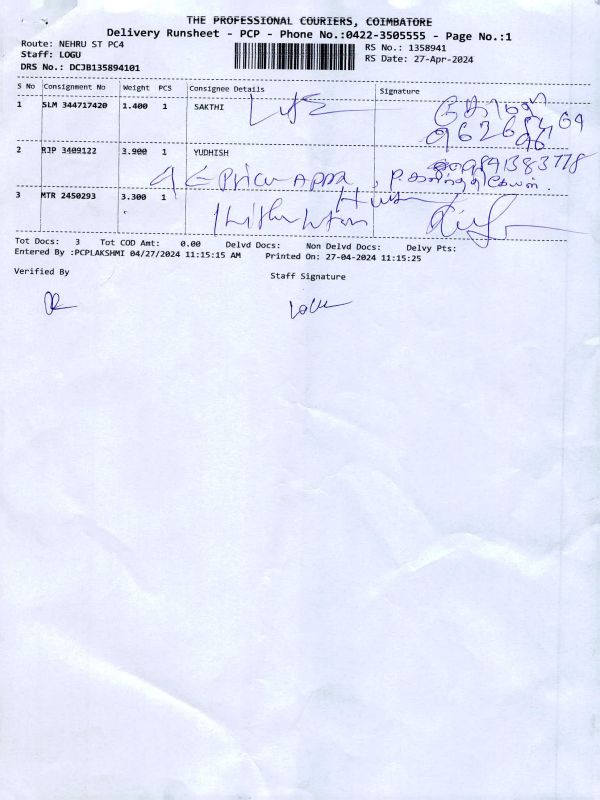 THE PROFESSIONAL COURIERS, COIMBATORE
Delivery Runsheet - PCP - Phone No.:0422-3505555 - Page No.:1
Route: NEHRU ST PC4 RS No.: 1358941
Staff: LOGU RS Date: 27-Apr-2024
DRS No.: DCJB135894101
S No Consignment No Weight PCS Consignee Details Signature
1 SLM 344717420 1.400 1 SAKTHI
2 RJP 3409122 3.900 1 YUDHISH
3 MTR 2450293 3.300 1
Tot Docs: 3 Tot COD Amt: 0.00 Delvd Docs: Non Delvd Docs: Delvy Pts:
Entered By :PCPLAKSHMI 04/27/2024 11:15:15 AM Printed On: 27-04-2024 11:15:25
Verified By
Staff Signature